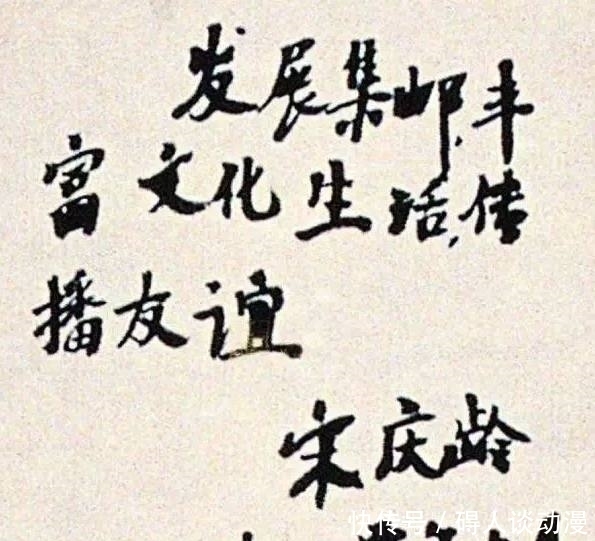 发展集邮,丰
富文化生活,传
播友谊
宋庆龄
快传号/碍人谈动漫